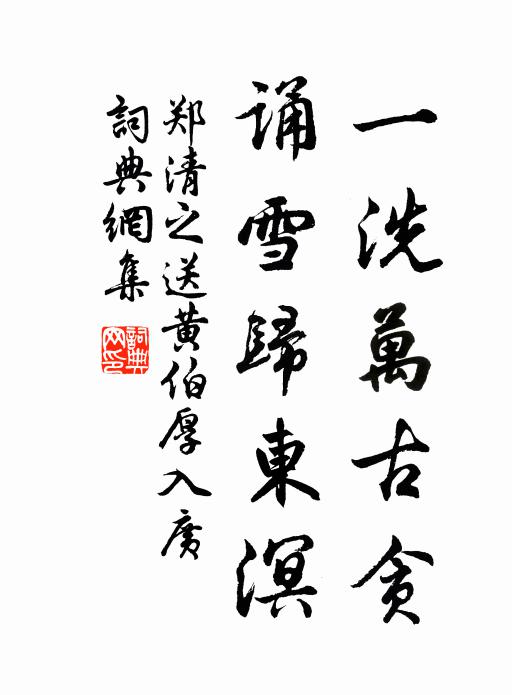 一洗萬古貪
誦雪歸東溟
郑清之送黄伯厚入廣
詞典網集
詞典
网印